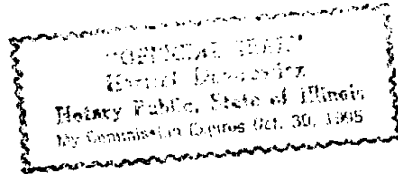 "OFFICIAL SEAL"
Notary Public, State of Illinois
My Commission Expires Oct. 30, 1995